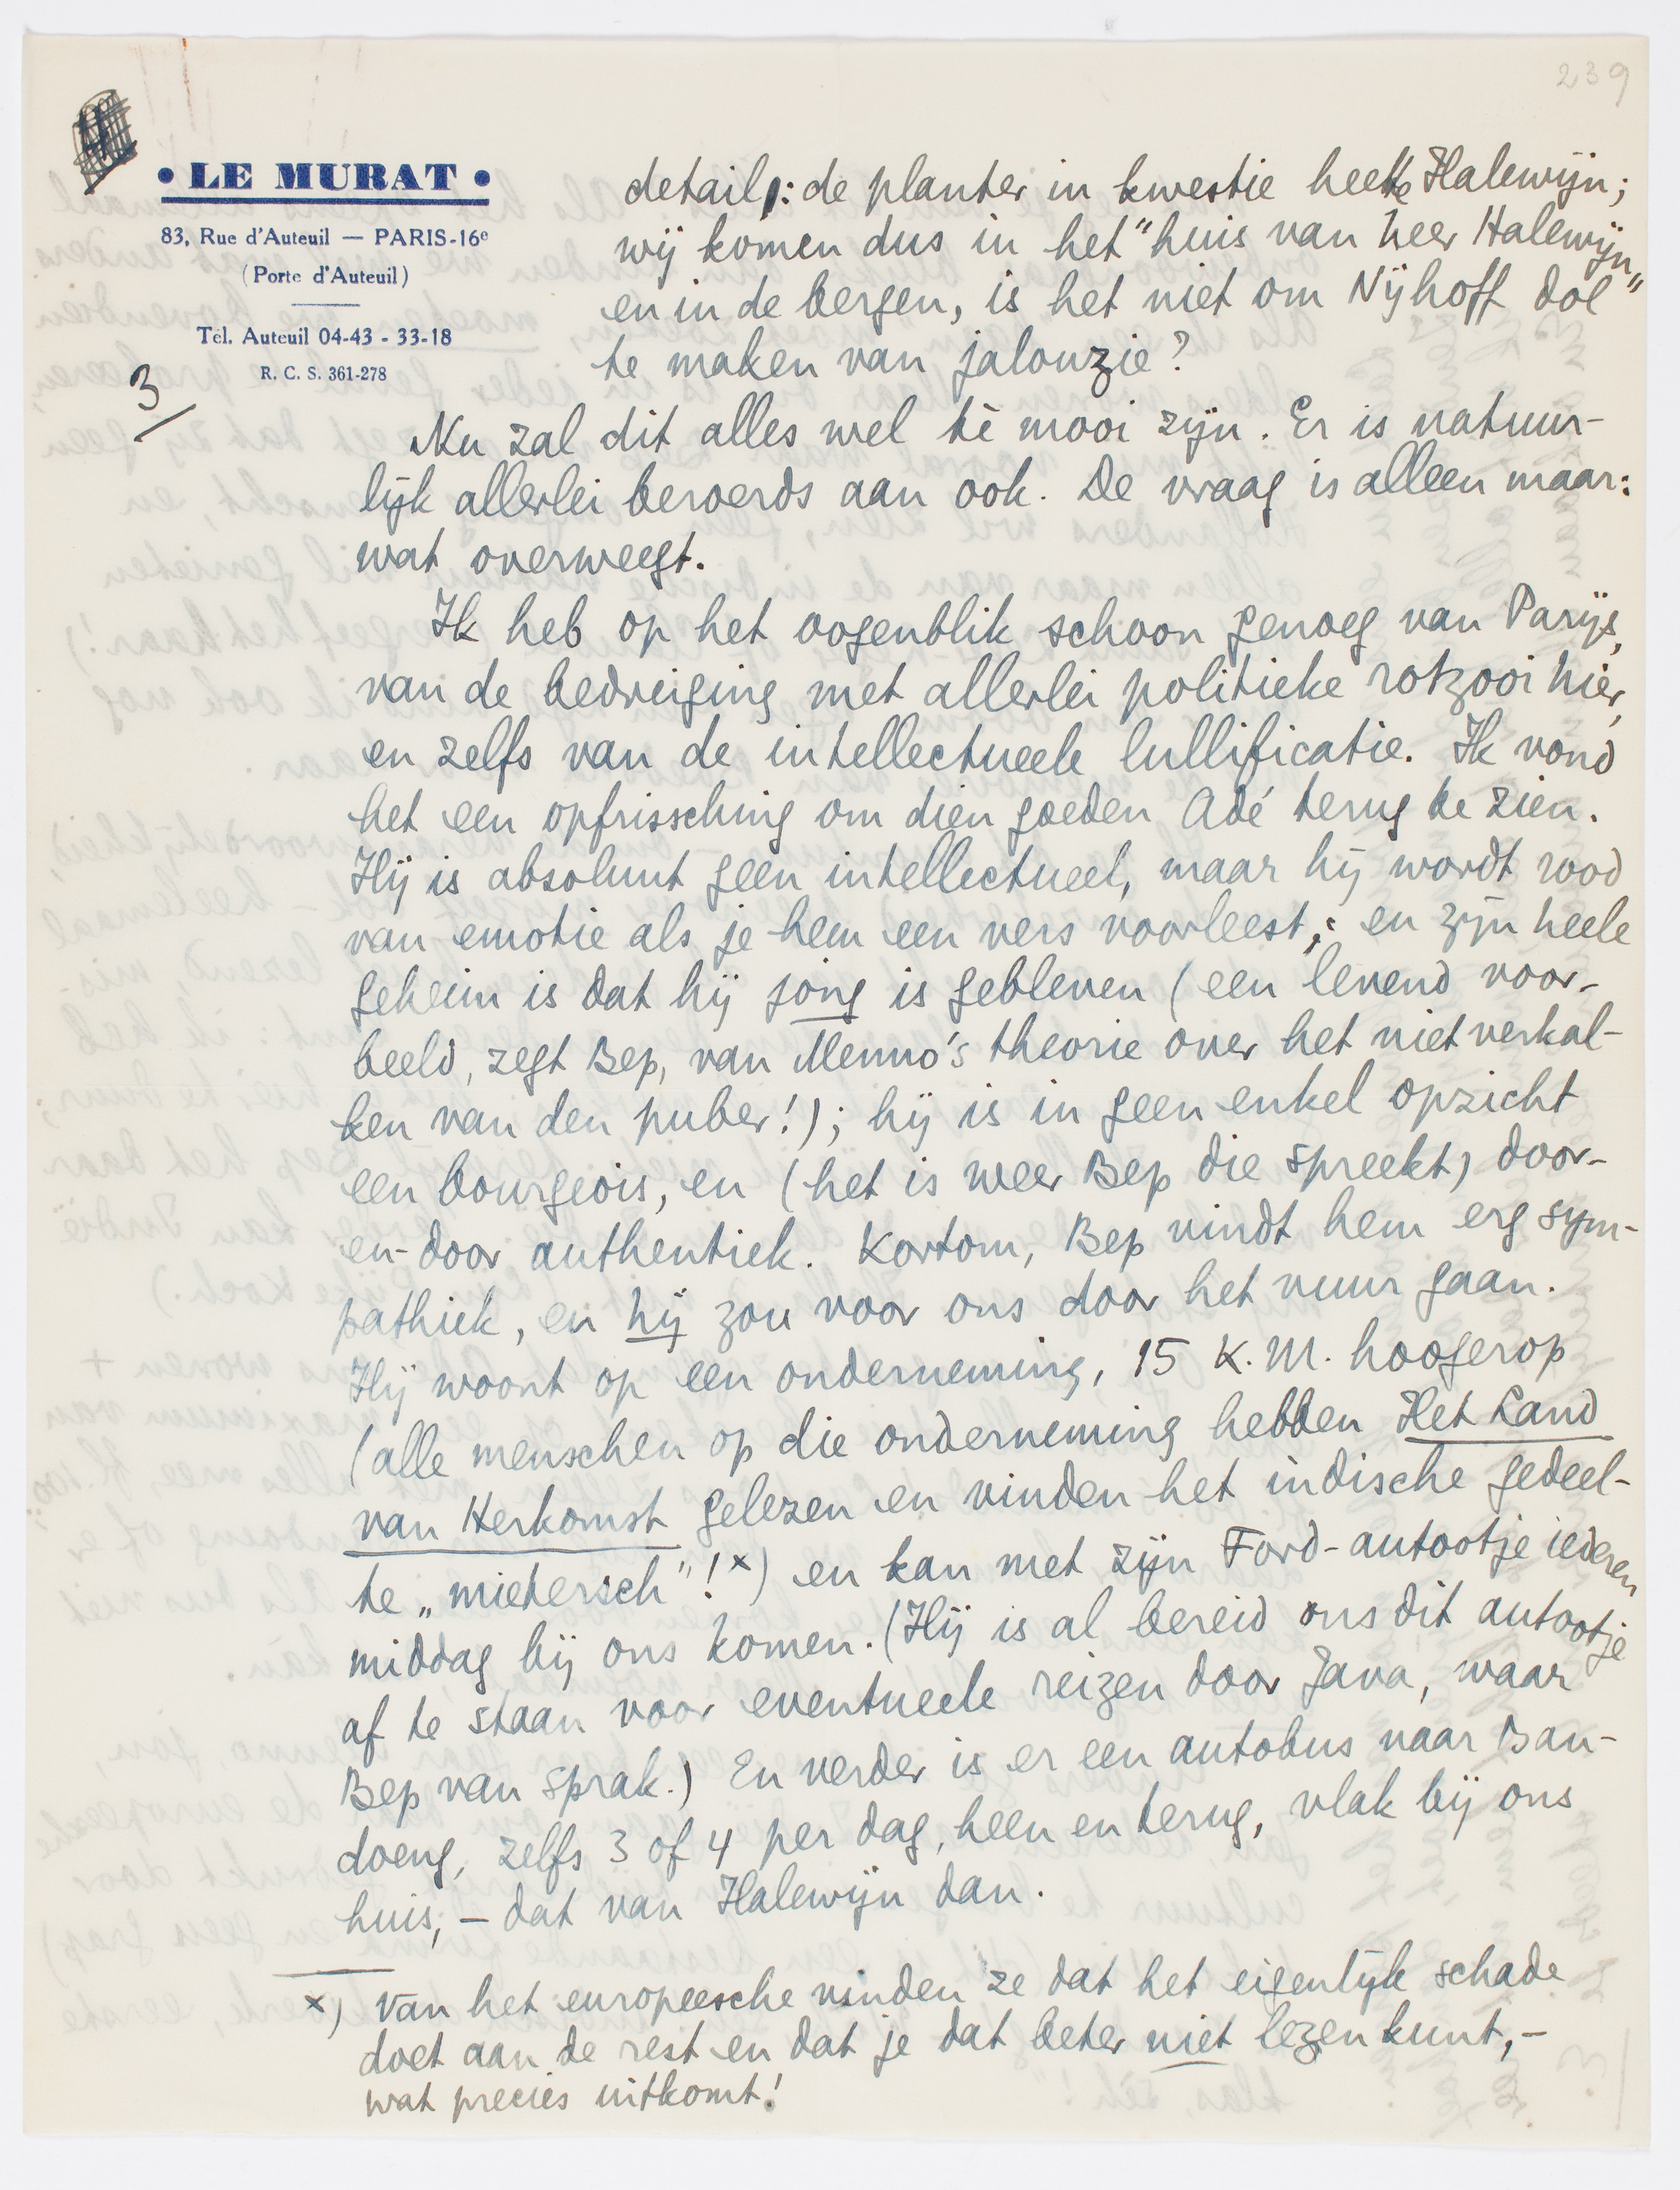 239
• LE MURAT •
83, Rue d'Auteuil — PARIS-16e
(Porte d'Auteuil)
Tél. Auteuil 04-43 - 33-18
R. C. S. 361-278
3
detail: de planter in kwestie heette Halewijn;
wij komen dus in het "huis van heer Halewijn"
en in de bergen, is het niet om Nijhoff dol
te maken van jalouzie?
Nu zal dit alles wel tè mooi zijn. Er is natuur-
lijk allerlei beroerds aan ook. De vraag is alleen maar:
wat overweegt.
Ik heb op het oogenblik schoon genoeg van Parijs,
van de bedreiging met allerlei politieke rotzooi hier,
en zelfs van de intellectueele lullificatie. Ik vond
het een opfrissching om dien goeden Adé terug te zien.
Hij is absoluut geen intellectueel, maar hij wordt rood
van emotie als je hem een vers voorleest; en zijn heele
geheim is dat hij jong is gebleven (een levend voor-
beeld, zegt Bep, van Menno's theorie over het niet verkal-
ken van den puber!); hij is in geen enkel opzicht
een bourgeois, en (het is weer Bep die spreekt) door-
en-door authentiek. Kortom, Bep vindt hem erg sym-
pathiek, en hij zou voor ons door het vuur gaan.
Hij woont op een onderneming, 15 K.M. hoogerop
(alle menschen op die onderneming hebben Het Land
van Herkomst gelezen en vinden het indische gedeel-
te „mietersch"! x) en kan met zijn Ford-autootje iederen
middag bij ons komen. (Hij is al bereid ons dit autootje
af te staan voor eventueele reizen door Java, waar
Bep van sprak.) En verder is er een autobus naar Ban-
doeng, zelfs 3 of 4 per dag, heen en terug, vlak bij ons
huis, — dat van Halewijn dan.
x) Van het europeesche vinden ze dat het eigenlijk schade
doet aan de rest en dat je dat beter niet lezen kunt, —
wat precies uitkomt!